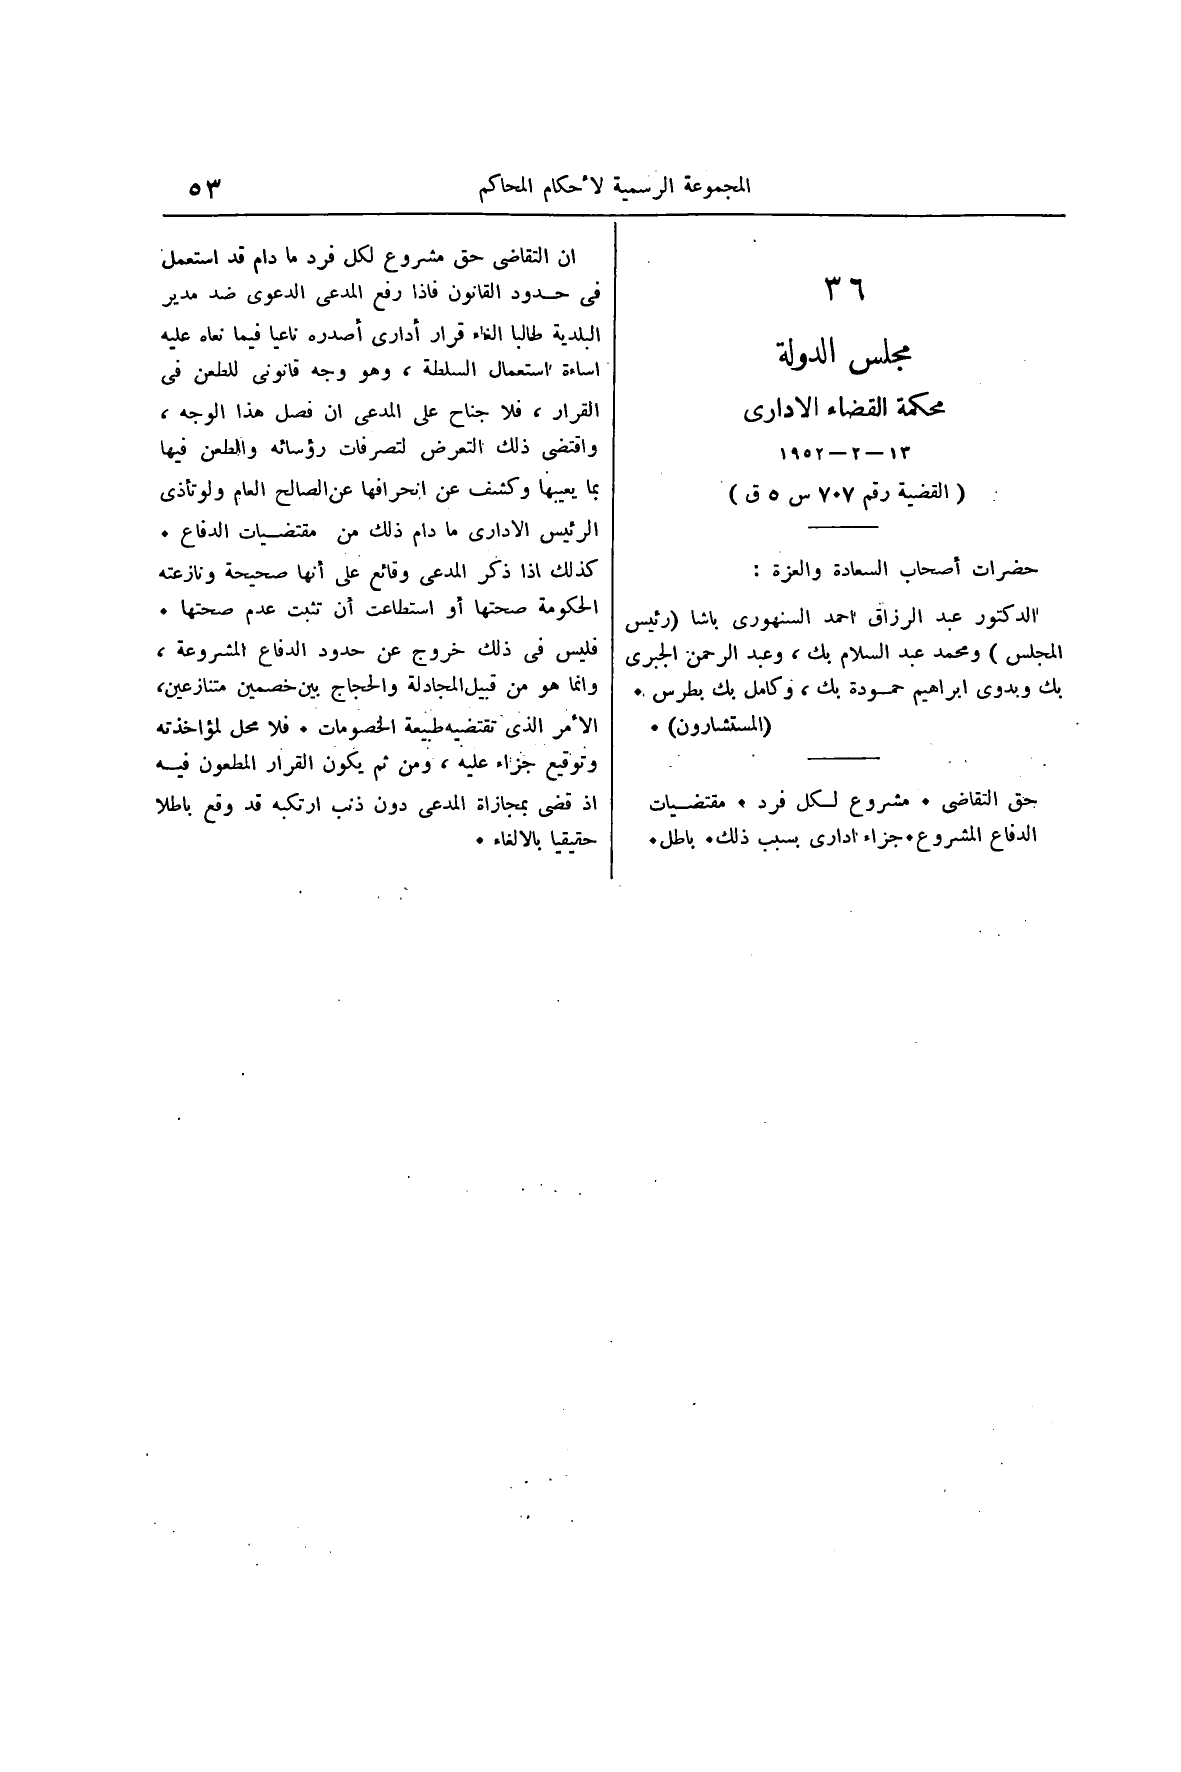 المجموعة الرسمية لأحكام المحاكم ٥٣
٣٦
مجلس الدولة
محكمة القضاء الادارى
١٣ — ٢ — ١٩٥٢
( القضية رقم ٧٠٧ س ٥ ق )
حضرات أصحاب السعادة والعزة :
الدكتور عبد الرزاق احمد السنهورى باشا (رئيس
المجلس ) ومحمد عبد السلام بك ، وعبد الرحمن الجبرى
بك وبدوى ابراهيم حمـودة بك ، وكامل بك بطرس .
(المستشارون) .
حق التقاضى . مشروع لـكل فرد . مقتضـيات
الدفاع المشروع . جزاء ادارى بسبب ذلك . باطل .
ان التقاضى حق مشروع لكل فرد ما دام قد استعمل
فى حـدود القانون فاذا رفع المدعى الدعوى ضد مدير
البلدية طالبا الغاء قرار أدارى أصدره ناعيا فيما نعاه عليه
اساءة استعمال السلطة ، وهو وجه قانونى للطعن فى
القرار ، فلا جناح على المدعى ان فصل هذا الوجه ،
واقتضى ذلك التعرض لتصرفات رؤسائه والطعن فيها
بما يعيبها وكشف عن انحرافها عن الصالح العام ولو تأذى
الرئيس الادارى ما دام ذلك من مقتضـيات الدفاع .
كذلك اذا ذكر المدعى وقائع على أنها صحيحة ونازعته
الحكومة صحتها أو استطاعت أن تثبت عدم صحتها .
فليس فى ذلك خروج عن حدود الدفاع المشروعة ،
وانما هو من قبيل المجادلة والحجاج بين خصمين متنازعين،
الأمر الذى تقتضيه طبيعة الخصومات . فلا محل لمؤاخذته
وتوقيع جزاء عليه ، ومن ثم يكون القرار المطعون فيـه
اذ قضى بمجازاة المدعى دون ذنب ارتكبه قد وقع باطلا
حقيقيا بالالغاء .